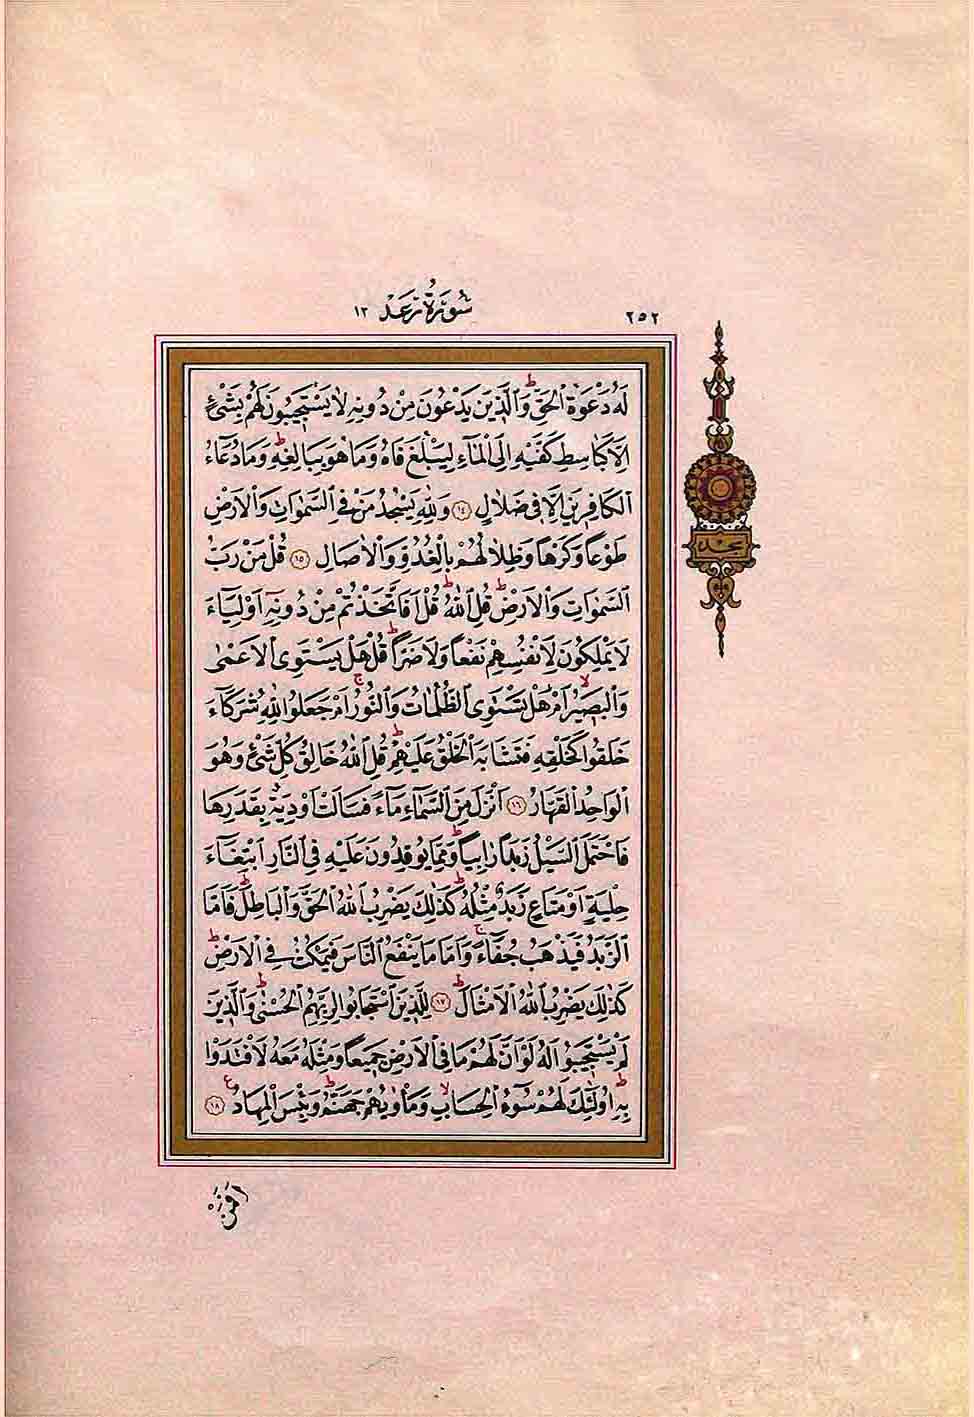 ٢٥٢
سُورَةُ رَعَدْ ١٣
لَهُ دَعْوَةُ الْحَقِّۜ وَالَّذ۪ينَ يَدْعُونَ مِنْ دُونِه۪ لَا يَسْتَج۪يبُونَ لَهُمْ بِشَيْءٍ
اِلَّا كَبَاسِطِ كَفَّيْهِ اِلَى الْمَٓاءِ لِيَبْلُغَ فَاهُ وَمَا هُوَ بِبَالِغِه۪ۜ وَمَا دُعَٓاءُ
الْكَافِر۪ينَ اِلَّا ف۪ي ضَلَالٍ ﴿١٤﴾ وَلِلّٰهِ يَسْجُدُ مَنْ فِي السَّمٰوَاتِ وَالْاَرْضِ
طَوْعاً وَكَرْهاً وَظِلَالُهُمْ بِالْغُدُوِّ وَالْاٰصَالِ ﴿١٥﴾ قُلْ مَنْ رَبُّ
السَّمٰوَاتِ وَالْاَرْضِۜ قُلِ اللّٰهُۜ قُلْ اَفَاتَّخَذْتُمْ مِنْ دُونِه۪ٓ اَوْلِيَٓاءَ
لَا يَمْلِكُونَ لِاَنْفُسِهِمْ نَفْعاً وَلَا ضَراًّۜ قُلْ هَلْ يَسْتَوِي الْاَعْمٰى
وَالْبَص۪يرُۙ اَمْ هَلْ تَسْتَوِي الظُّلُمَاتُ وَالنُّورُۚ اَمْ جَعَلُوا لِلّٰهِ شُرَكَٓاءَ
خَلَقُوا كَخَلْقِه۪ فَتَشَابَهَ الْخَلْقُ عَلَيْهِمْۜ قُلِ اللّٰهُ خَالِقُ كُلِّ شَيْءٍ وَهُوَ
الْوَاحِدُ الْقَهَّارُ ﴿١٦﴾ اَنْزَلَ مِنَ السَّمَٓاءِ مَٓاءً فَسَالَتْ اَوْدِيَةٌ بِقَدَرِهَا
فَاحْتَمَلَ السَّيْلُ زَبَداً رَابِياًۜ وَمِمَّا يُوقِدُونَ عَلَيْهِ فِي النَّارِ ابْتِغَٓاءَ
حِلْيَةٍ اَوْ مَتَاعٍ زَبَدٌ مِثْلُهُۜ كَذٰلِكَ يَضْرِبُ اللّٰهُ الْحَقَّ وَالْبَاطِلَۜ فَاَمَّا
الزَّبَدُ فَيَذْهَبُ جُفَٓاءًۚ وَاَمَّا مَا يَنْفَعُ النَّاسَ فَيَمْكُثُ فِي الْاَرْضِۜ
كَذٰلِكَ يَضْرِبُ اللّٰهُ الْاَمْثَالَۜ ﴿١٧﴾ لِلَّذ۪ينَ اسْتَجَابُوا لِرَبِّهِمُ الْحُسْنٰىۜ وَالَّذ۪ينَ
لَمْ يَسْتَج۪يبُوا لَهُ لَوْ اَنَّ لَهُمْ مَا فِي الْاَرْضِ جَم۪يعاً وَمِثْلَهُ مَعَهُ لَافْتَدَوْا
بِه۪ۜ اُو۬لٰٓئِكَ لَهُمْ سُٓوءُ الْحِسَابِۙ وَمَأْوٰيهُمْ جَهَنَّمُۜ وَبِئْسَ الْمِهَادُ ع ﴿١٨﴾
سجده
اَفَمَنْ